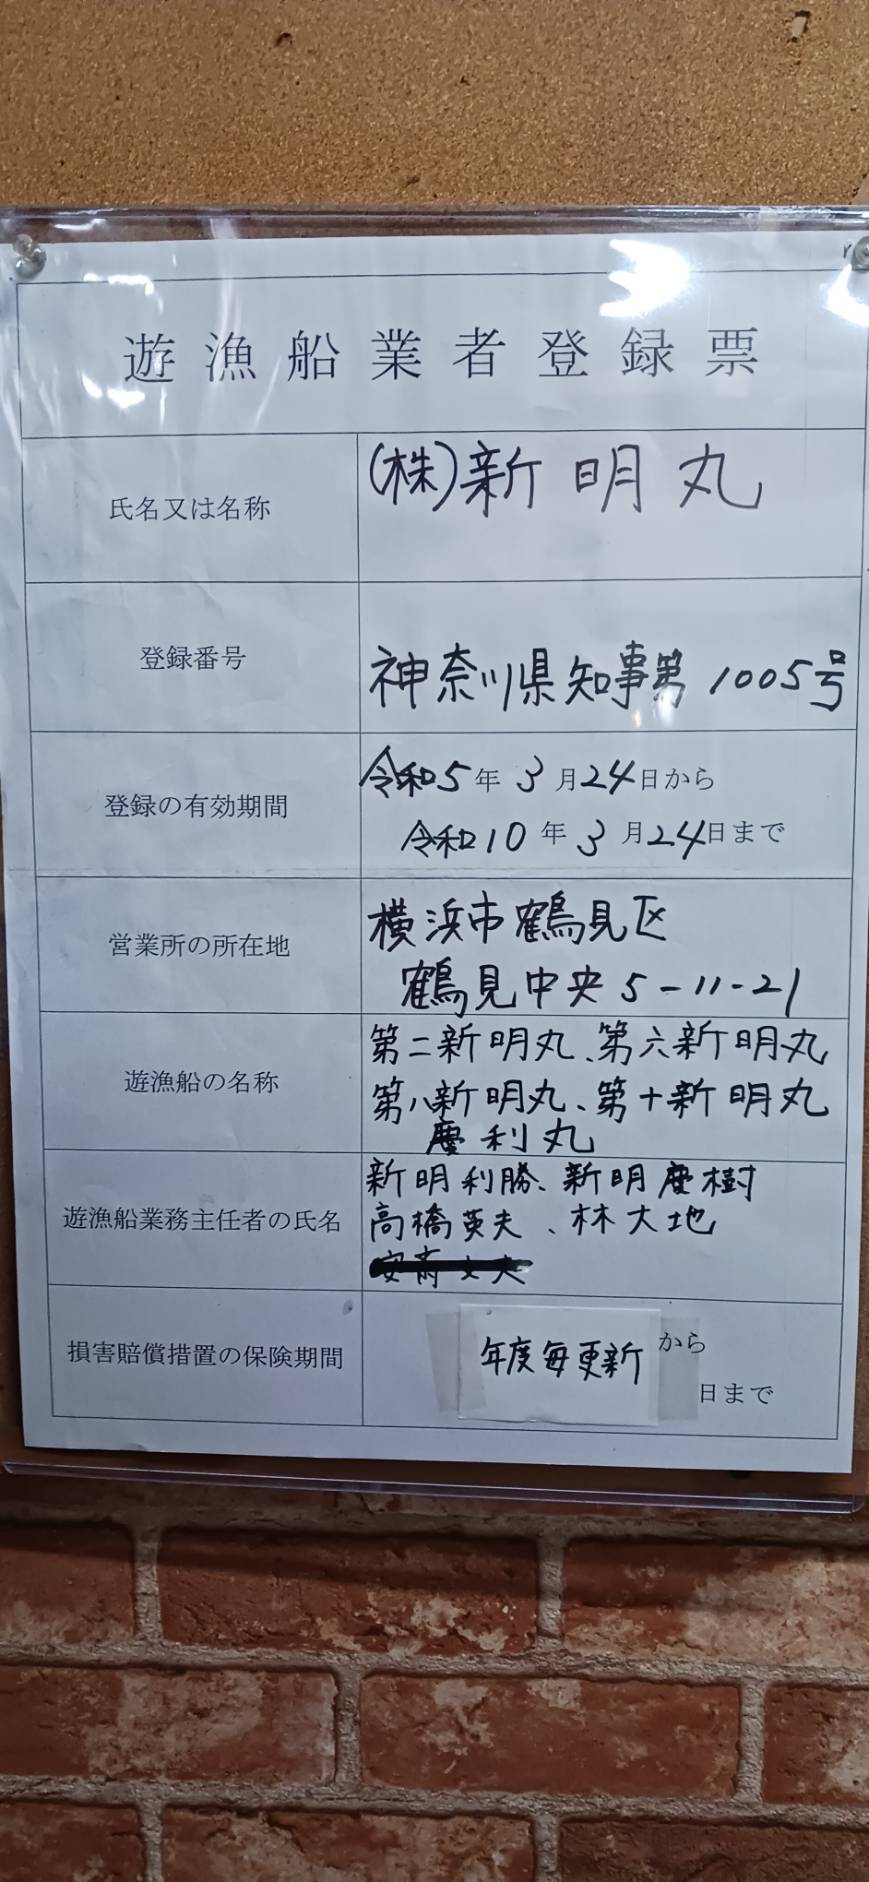 遊漁船業者登録票
氏名又は名称
(株)新明丸
登録番号
神奈川県知事第1005号
登録の有効期間
令和5年3月24日から
令和10年3月24日まで
営業所の所在地
横浜市鶴見区
鶴見中央5-11-21
遊漁船の名称
第二新明丸、第六新明丸
第八新明丸、第十新明丸
慶利丸
遊漁船業務主任者の氏名
新明利勝、新明慶樹
高橋英夫、林大地
損害賠償措置の保険期間
年度毎更新から
日まで